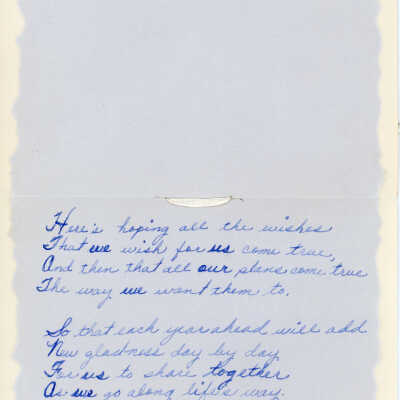 Here's hoping all the wishes
That we wish for us come true,
And then that all our plans come true
The way we want them to.
So that each year ahead will add
New gladness day by day
For us to share together
As we go along life's way.